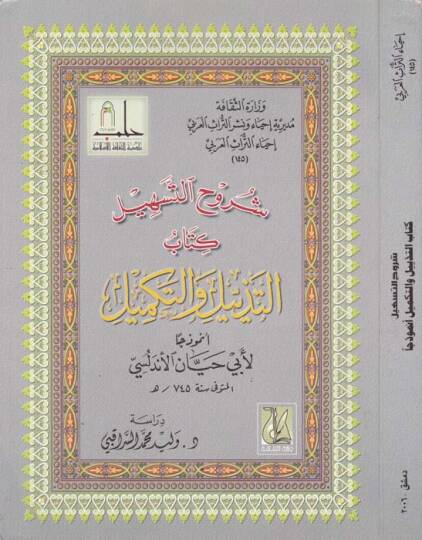 وزارة الثقافة
مديرية إحياء ونشر التراث العربي
إحياء التراث العربي
(١٤٥)
حلب
شروح التسهيل
كتاب
التذييل والتكميل
أنموذجاً
لأبي حيان الأندلسي
المتوفى سنة ٧٤٥ / هـ
دراسة
د. وليد محمد السراقبي
إحياء التراث العربي
(١٤٥)
شروح التسهيل
كتاب التذييل والتكميل أنموذجاً
دمشق ٢٠٠٦